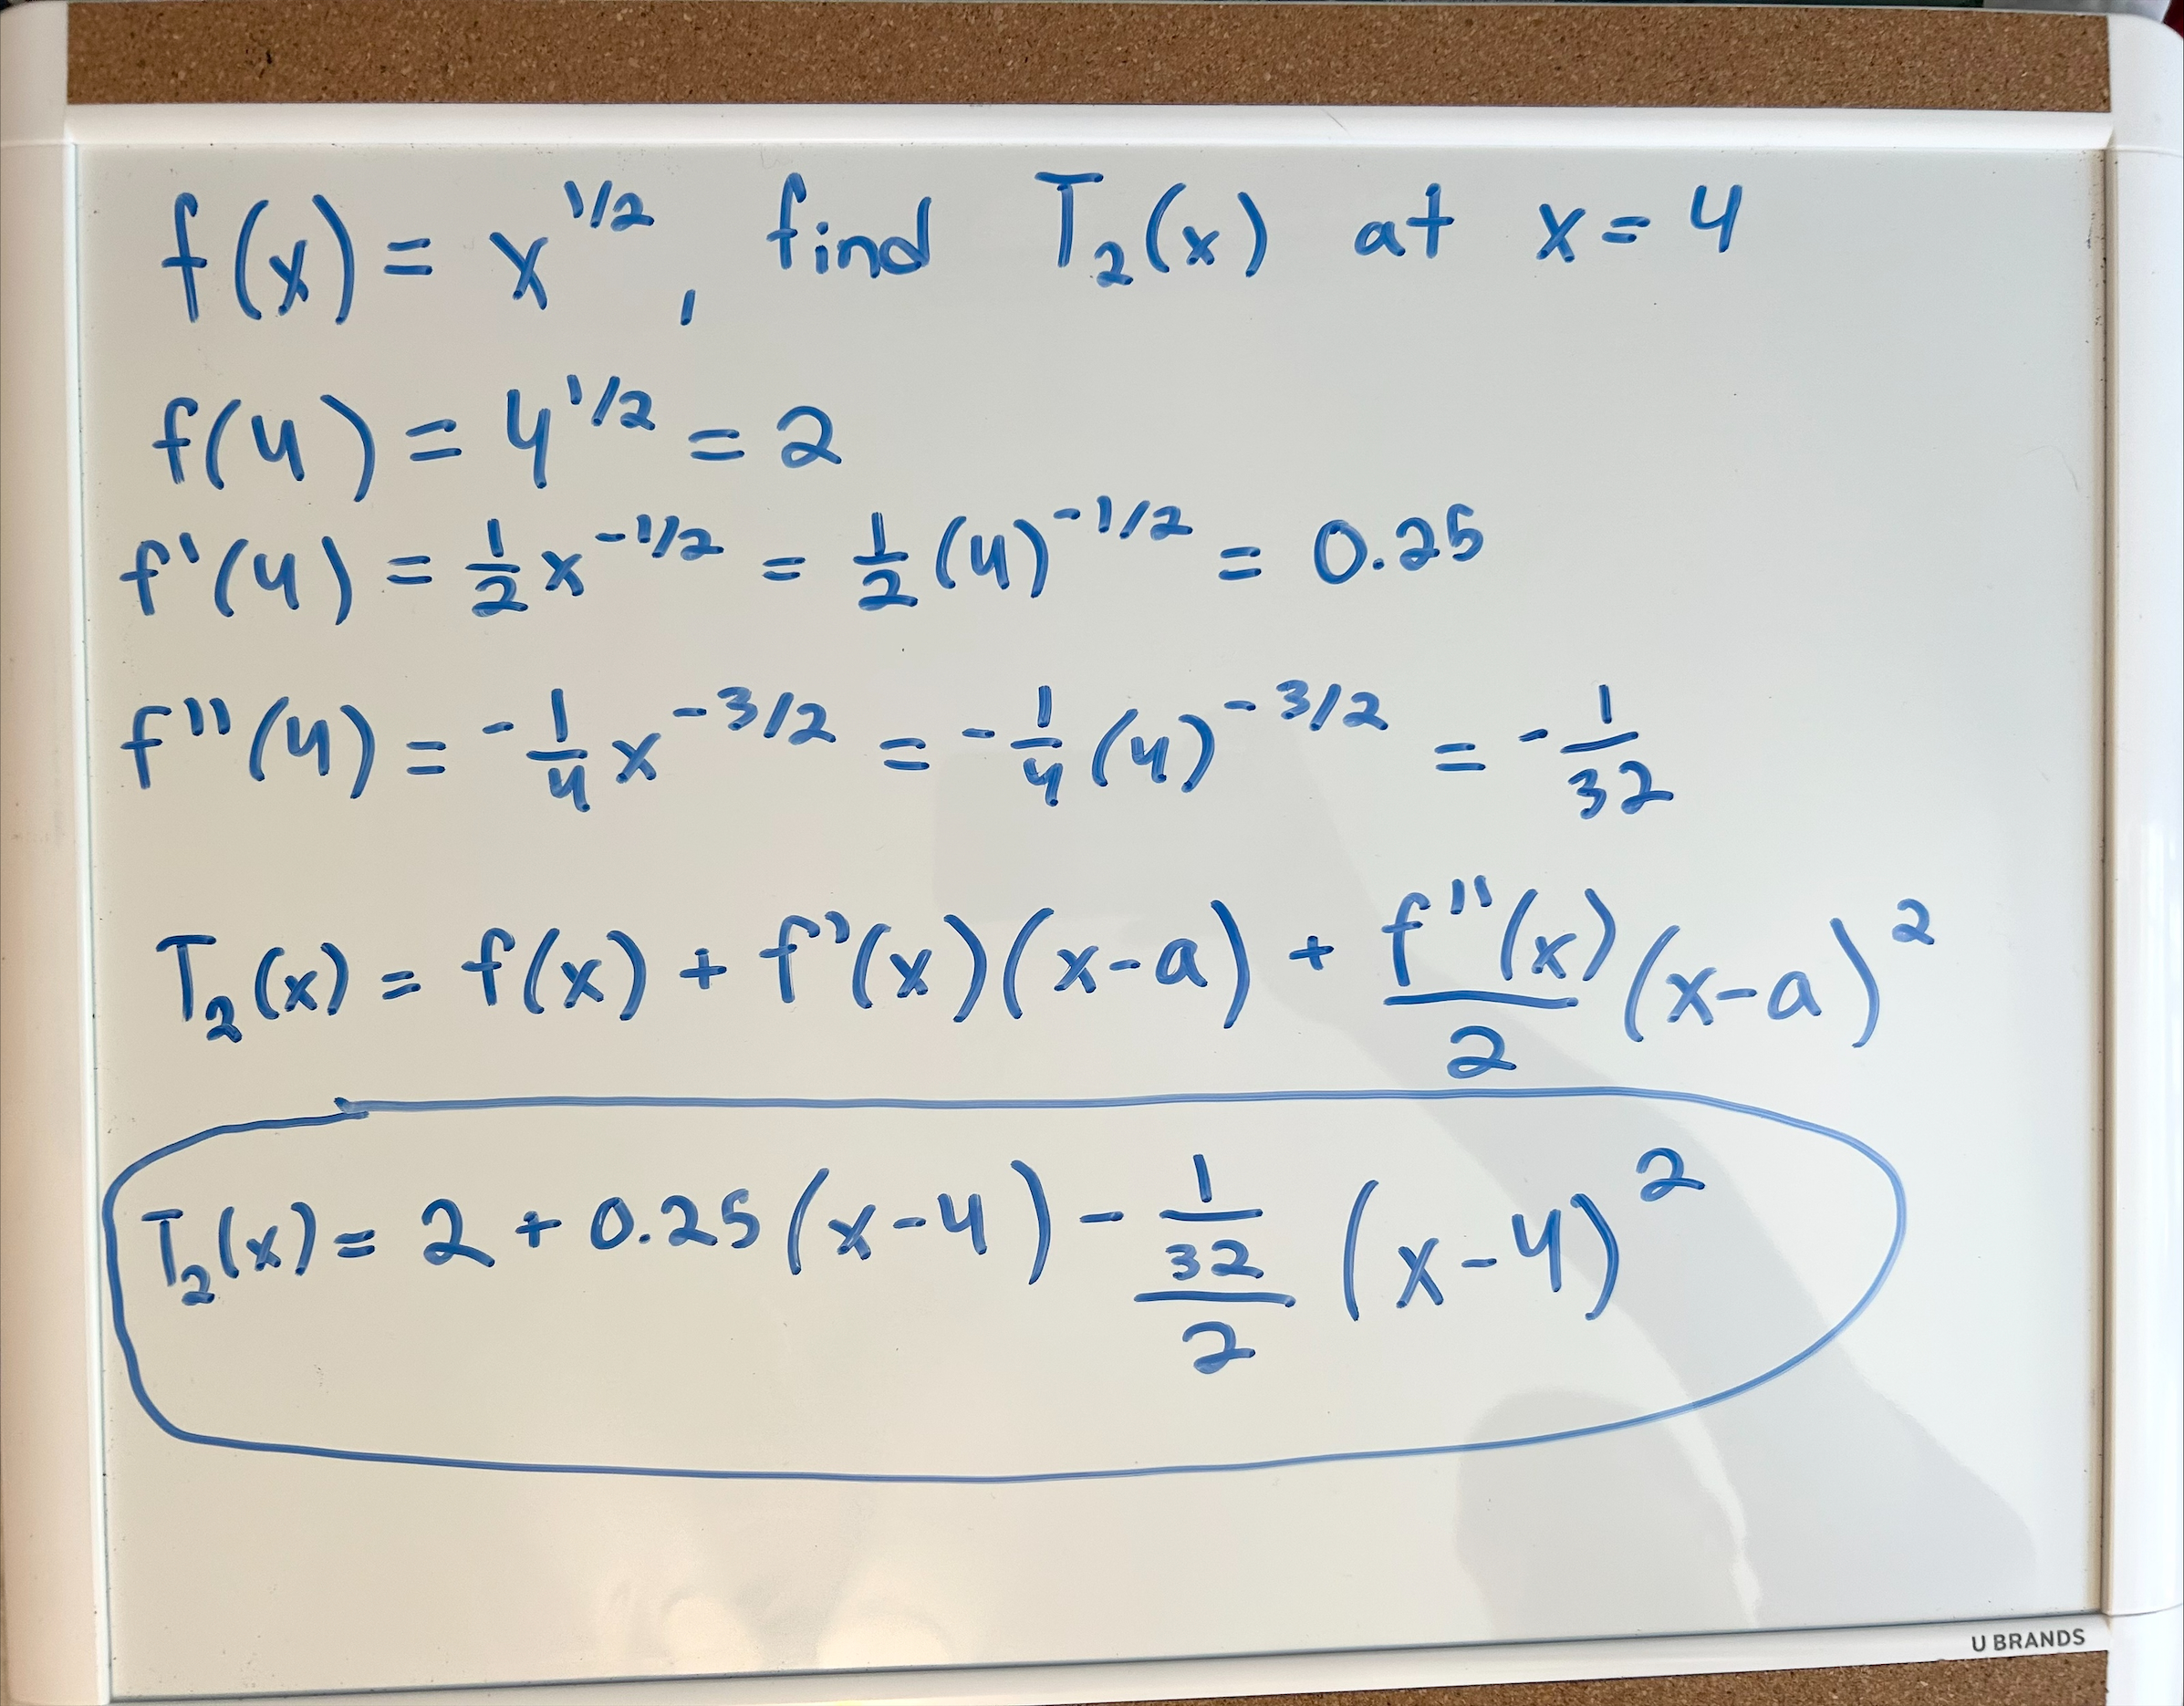 f(x) = x^{1/2}, find T_2(x) at x = 4
f(4) = 4^{1/2} = 2
f'(4) = \frac{1}{2} x^{-1/2} = \frac{1}{2} (4)^{-1/2} = 0.25
f''(4) = -\frac{1}{4} x^{-3/2} = -\frac{1}{4} (4)^{-3/2} = -\frac{1}{32}
T_2(x) = f(x) + f'(x)(x-a) + \frac{f''(x)}{2} (x-a)^2
T_2(x) = 2 + 0.25(x-4) - \frac{\frac{1}{32}}{2} (x-4)^2
U BRANDS